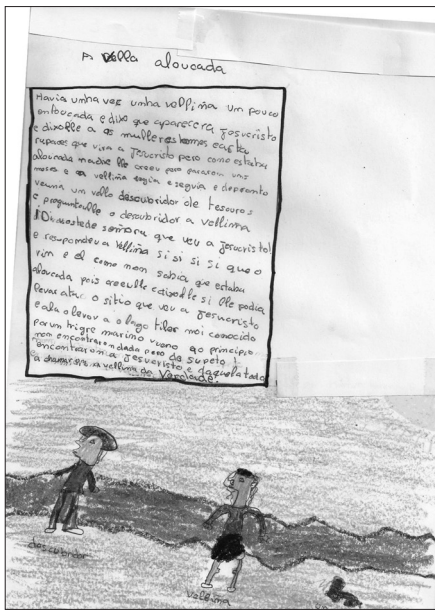 A vella aloucada
Havia unha vez unha velliña um pouco
entoucada e dixo que aparecera Jesucristo
e dixolle a as mulleres homes e
rapaces que vira a Jesucristo pero como estaba
aloucada nadie lle creeu pero pasarom uns
meses e a velliña seguia e seguia e depronto
veuna um vello descubridor de tesouros
e preguntoulle o descubridor a vellima
! Di vostede señora que veu a Jesucristo!
e respondeu a velliña si si si si que o
vim e el como nom sabia que estaba
aloucada pois creeulle e dixolle si lle podia
levar atar o sitio que veu a Jesucristo
e ala o levou a o lago tilar moi conocido
por um trigre marimo vueno ao principio
nom encontrarom nada pero de supeto !
encontrarom a Jesucristo e daquela todos
a chamarom a vellima da Verdade.
descubridor
Vellima